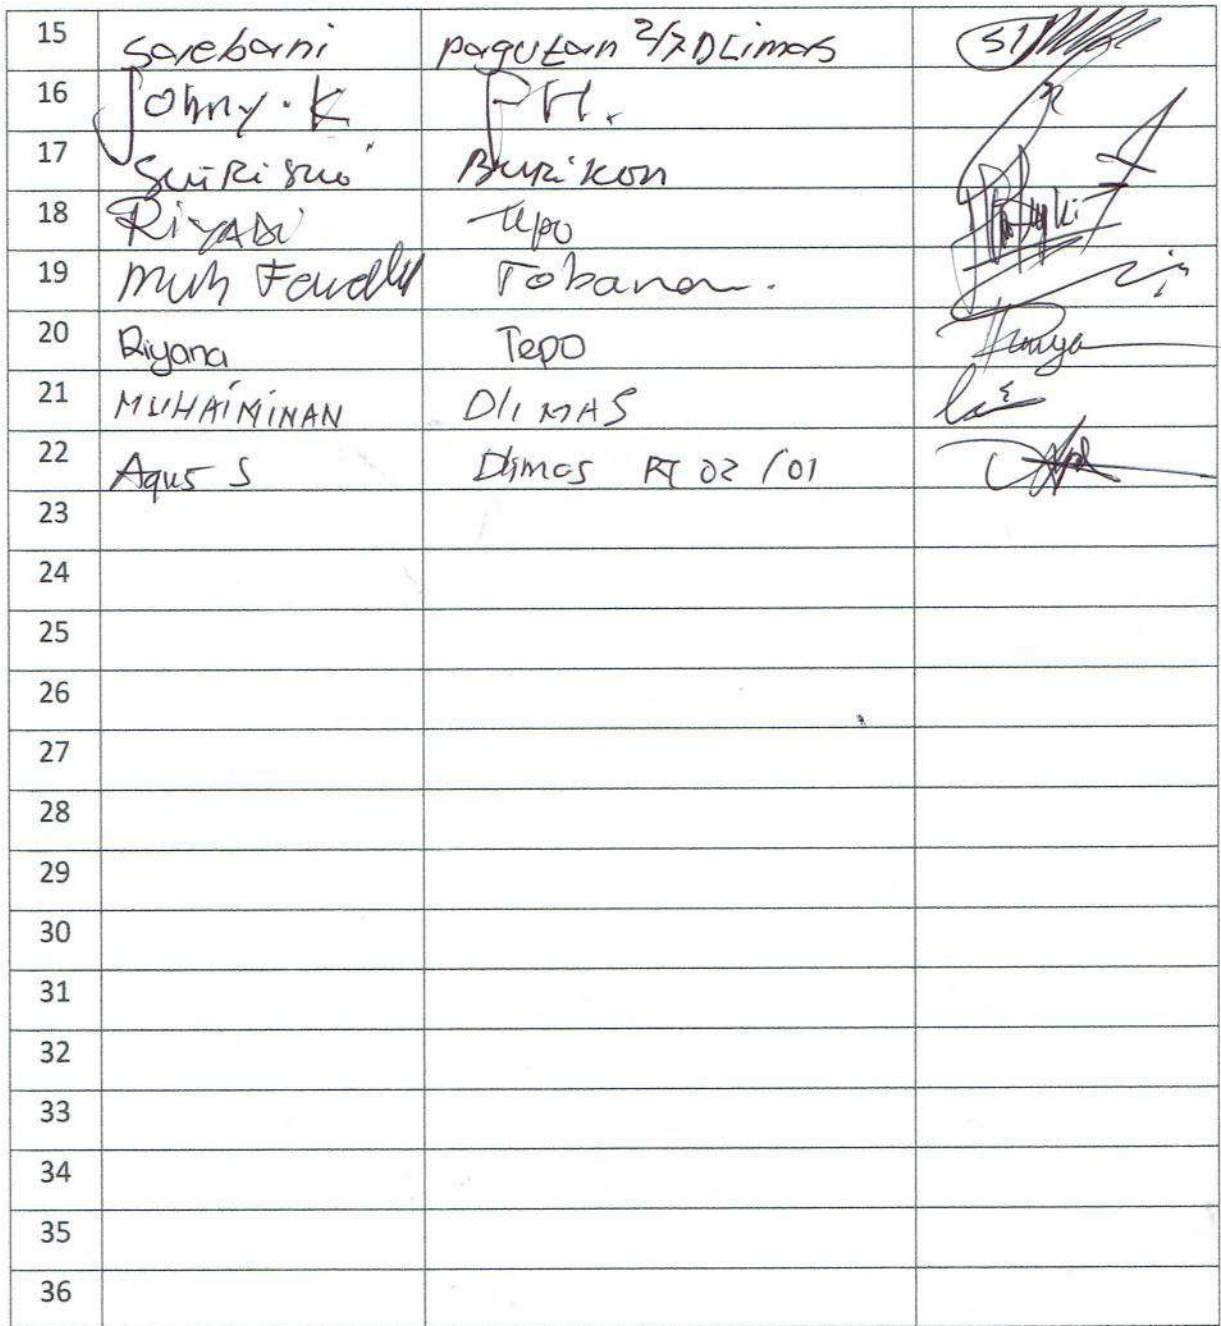 15 Sarebani pagutan 2/7 DLimas
16 Johny. K
17 Burikon
18 Riyadi Tepo
19 Muh
20 Riyana Tepo
21 MUHAIMINAN DlIMAS
22 Agus S Dlimas RT 02 /01
23
24
25
26
27
28
29
30
31
32
33
34
35
36